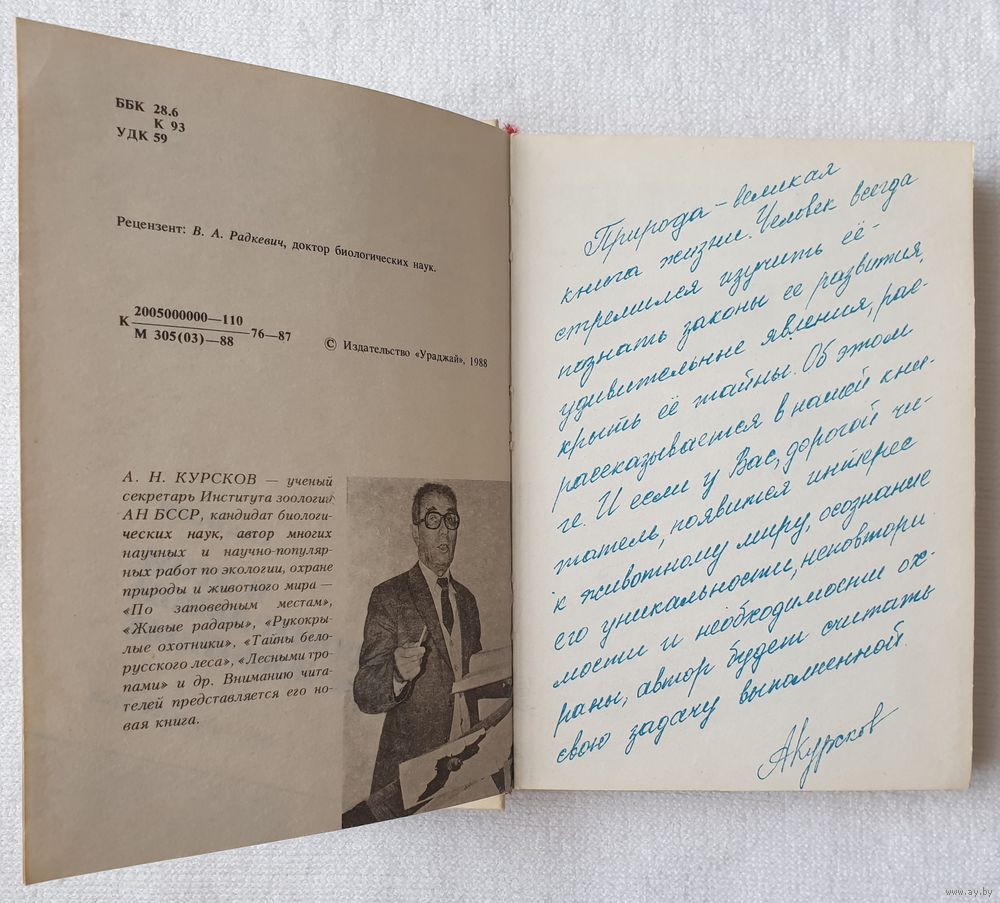 ББК 28.6
К 93
УДК 59
Рецензент: В. А. Радкевич, доктор биологических наук.
К 2005000000—110
М 305(03)—88
76—87
© Издательство «Ураджай», 1988
А. Н. КУРСКОВ — ученый
секретарь Института зоологии
АН БССР, кандидат биологи-
ческих наук, автор многих
научных и научно-популяр-
ных работ по экологии, охране
природы и животного мира —
«По заповедным местам»,
«Живые радары», «Рукокры-
лые охотники», «Тайны бело-
русского леса», «Лесными тро-
пами» и др. Вниманию чита-
телей представляется его но-
вая книга.
Природа – великая
книга жизни. Человек всегда
стремился изучить её –
познать законы ее развития,
удивительные явления, рас-
крыть её тайны. Об этом
рассказывается в нашей кни-
ге. И если у Вас, дорогой чи-
татель, появится интерес
к животному миру, осознание
его уникальности, неповтори
мости и необходимости ох-
раны, автор будет считать
свою задачу выполненной.
АКурсков
www.ay.by